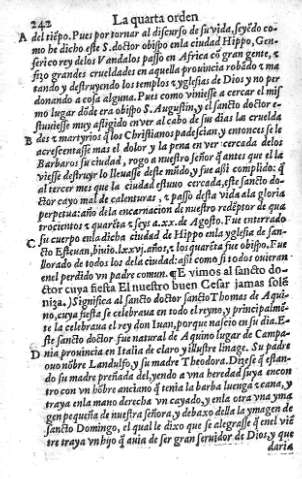 242 La quarta orden
A del tiẽpo. Pues por tornar al discurso de su vida, seyẽdo co-
mo he dicho este S. doctor obispo en la ciudad Hippo, Gen-
serico rey delos Vandalos passo en Africa cõ gran gente, z
hizo grandes crueldades en aquella prouincia robãdo z ma
tando y destruyendo los templos z yglesias de Dios y no per
donando a cosa alguna. Pues como viniesse a cercar el mis
mo lugar dõde era obispo S. Augustin, y el sancto doctor e-
stuuiesse muy afligido en ver al cabo de sus dias las cruelda
B des z martyrios q̃ los Christianos padescian, y entonces se le
acrescentasse mas el dolor y la pena en ver cercada delos
Barbaros su ciudad, rogo a nuestro señor q̃ antes que el la
viesse destruyr lo lleuasse deste mũdo, y fue assi complido: q̃
al tercer mes que la ciudad estuuo cercada, este sancto do-
ctor cayo mal de calenturas, z passo desta vida ala gloria
perpetua: año dela encarnacion de nuestro redẽptor de qua
trocientos z quarẽta z seys a.xx. de Agosto. Fue enterrado
C su cuerpo en la dicha ciudad de Hippo en la yglesia de san-
cto Esteuan, biuio.lxxvj. años, z los quarẽta fue obispo. Fue
llorado de todos los dela ciudad: assi como si todos ouieran
enel perdido vn padre comun. ¶ E vimos al sancto do-
ctor cuya fiesta El nuestro buen Cesar jamas solẽ
niza.) Significa al sancto doctor sancto Thomas de Aqui-
no, cuya fiesta se celebraua en todo el reyno, y principalmẽ-
te la celebraua el rey don Iuan, porque nascio en su dia. E-
ste sancto doctor fue natural de Aquino lugar de Campa-
D nia prouincia en Italia de claro y illustre linage. Su padre
ouo nõbre Landulfo, y su madre Theodora. Dizese q̃ estan-
do su madre preñada del, yendo a vna heredad suya encon
tro con vn hõbre anciano q̃ tenia la barba luenga z cana, y
traya en la mano derecha vn cayado, y en la otra vna yma
gen pequeña de nuestra señora, y debaxo della la ymagen de
sancto Domingo, el qual le dixo que se alegrasse q̃ enel viẽ
tre traya vn hijo q̃ auia de ser gran seruidor de Dios, y que
daria